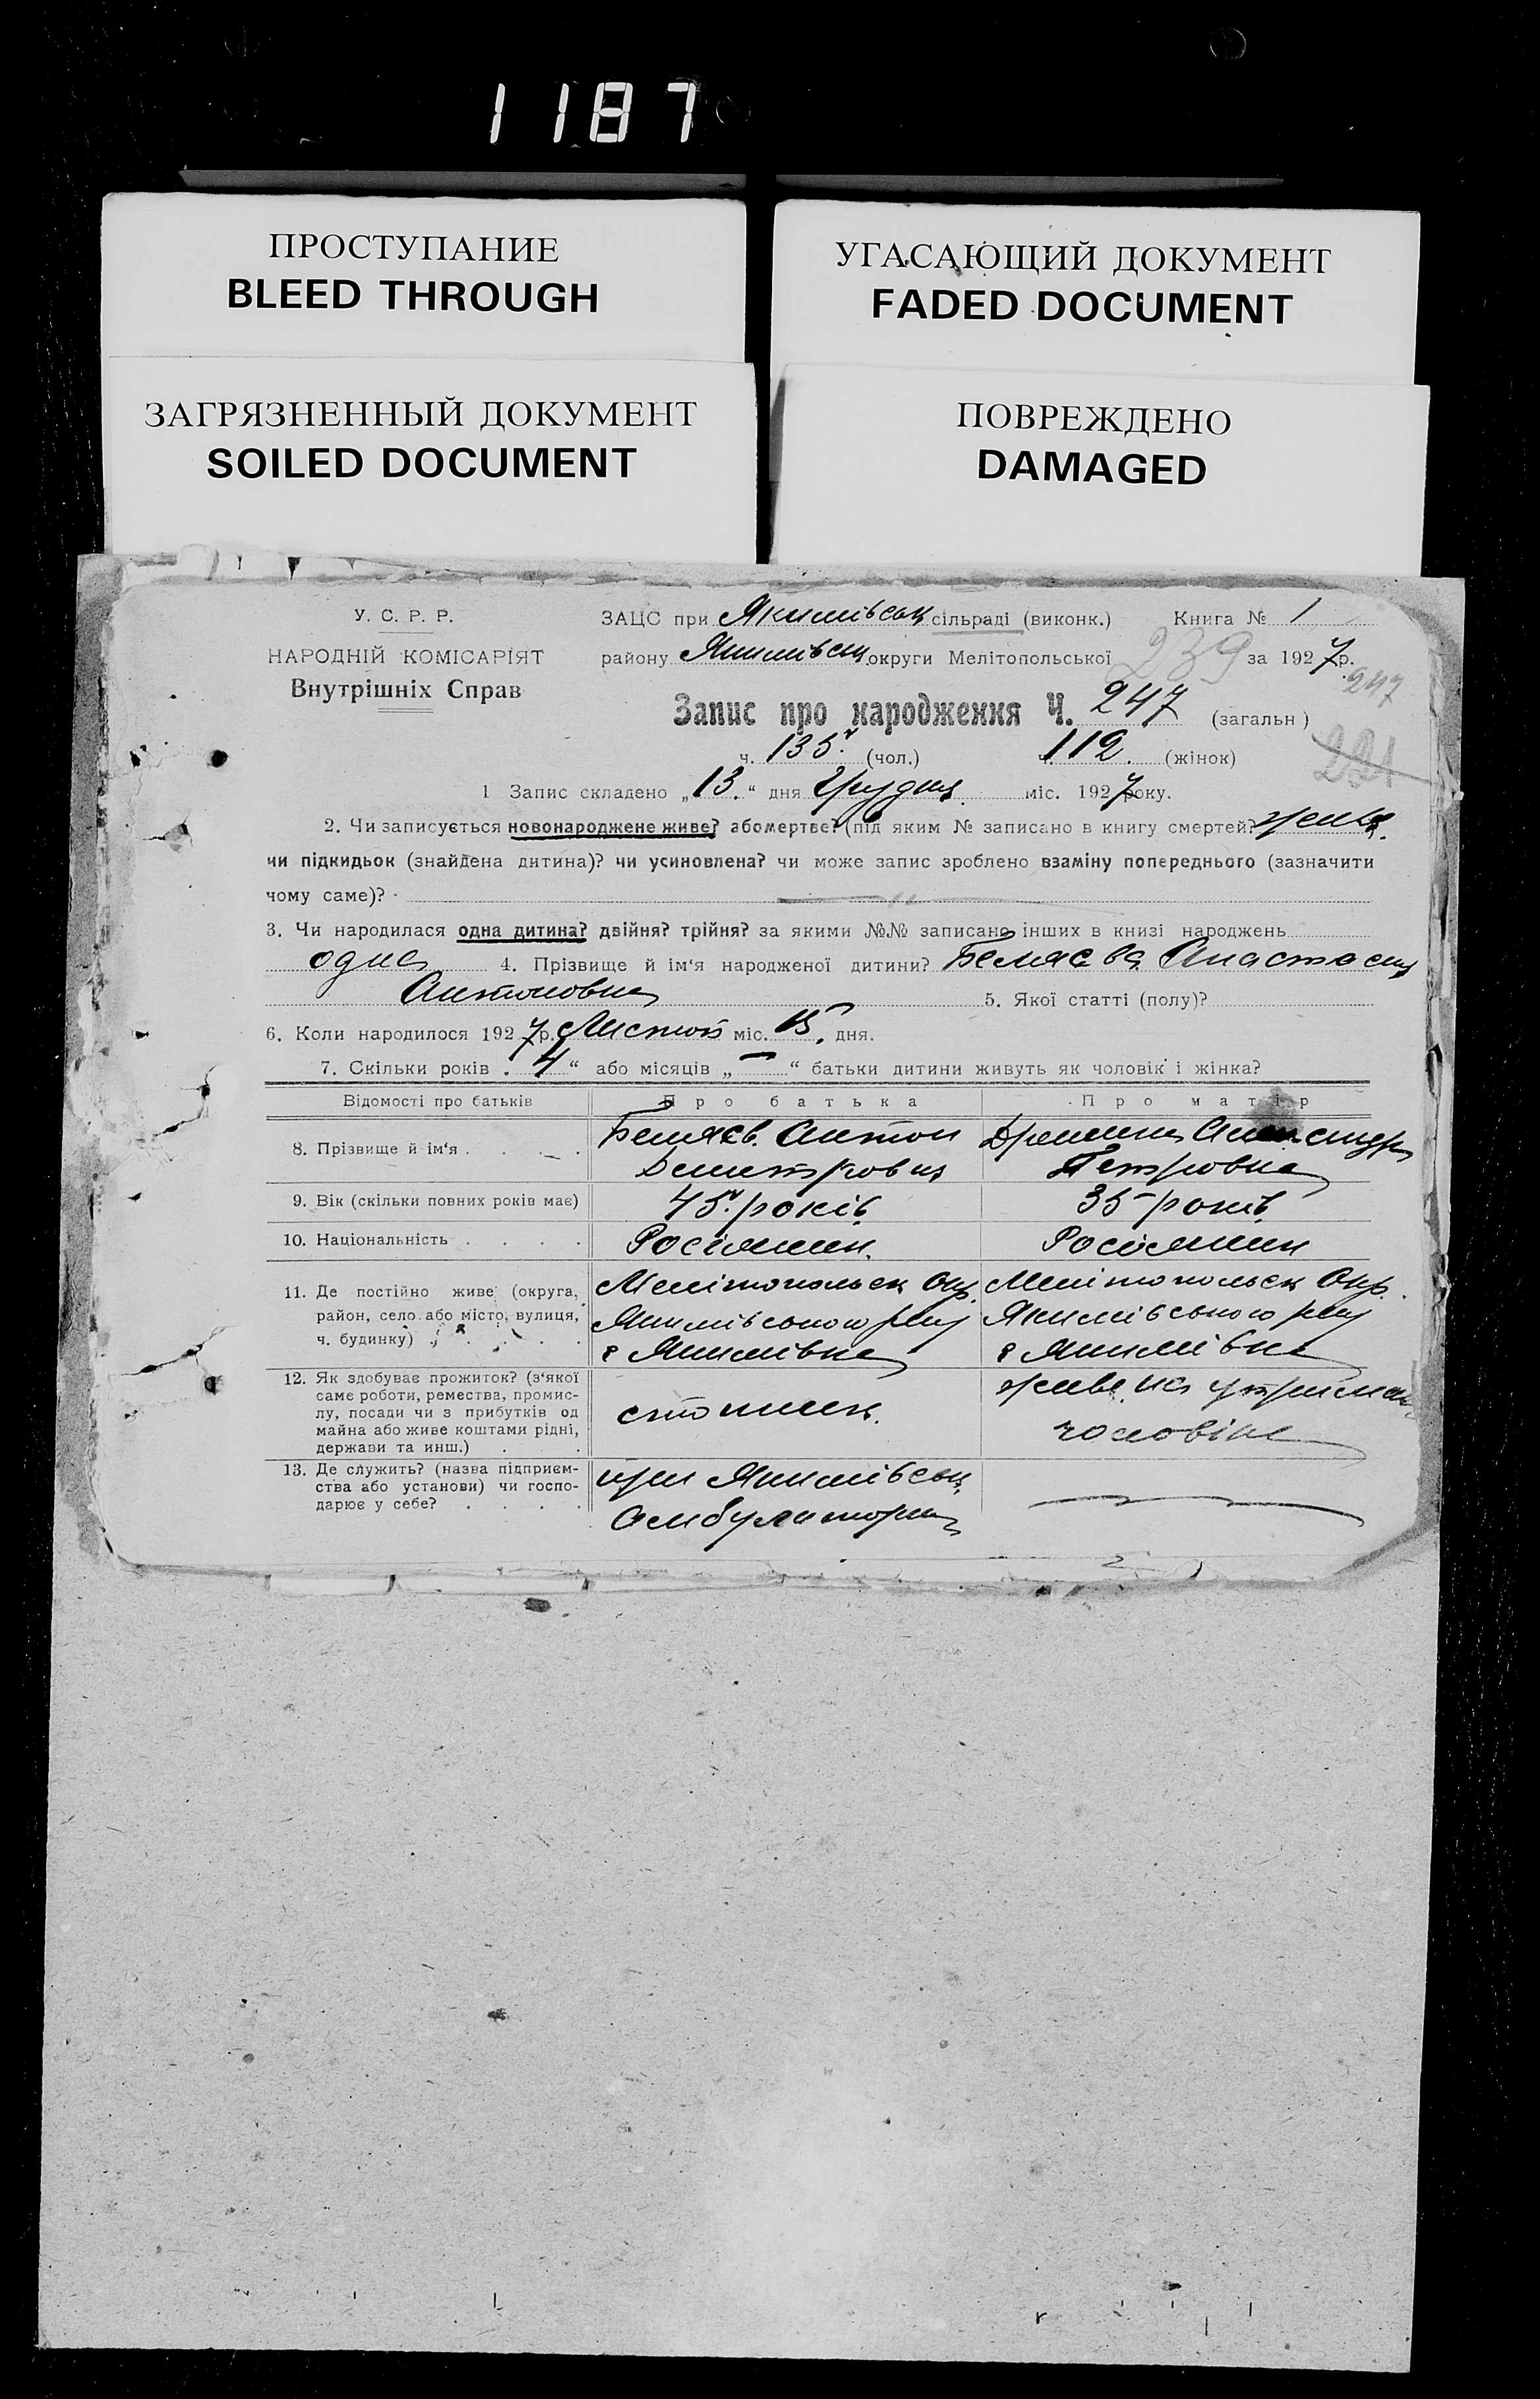 1187
ПРОСТУПАНИЕ
BLEED THROUGH
УГАСАЮЩИЙ ДОКУМЕНТ
FADED DOCUMENT
ЗАГРЯЗНЕННЫЙ ДОКУМЕНТ
SOILED DOCUMENT
ПОВРЕЖДЕНО
DAMAGED
У. С. Р. Р.
НАРОДНІЙ КОМІСАРІЯТ
Внутрішніх Справ
ЗАЦС при Якимівськ сільраді (виконк.) Книга № 1
району Якимівськ округи Мелітопольської 239 за 1927 р.
247
Запис про народження Ч. 247 (загальн)
ч. 135 (чол.) ч. 112. (жінок)
221
1 Запис складено „13.“ дня Грудня міс. 1927 року.
2. Чи записується новонароджене живе? або мертве? (під яким № записано в книгу смертей? живе.
чи підкидьок (знайдена дитина)? чи усиновлена? чи може запис зроблено взаміну попереднього (зазначити
чому саме)?
3. Чи народилася одна дитина? двійня? трійня? за якими №№ записано інших в книзі народжень
одна 4. Прізвище й ім‘я народженої дитини? Беляєва Анастасия
Антоновна 5. Якої статті (полу)?
6. Коли народилося 1927 р. Листоп міс. 15. дня.
7. Скільки років . 4 “ або місяців „ — “ батьки дитини живуть як чоловік і жінка?
Відомості про батьків Про батька Про матір
8. Прізвище й ім‘я . . . . Беляєв. Антон Александра
Дмитрович Петровна
9. Вік (скільки повних років має) 45. років. 35 років.
10. Національність . . . . Росіянин. Росіянин
11. Де постійно живе (округа, район, село або місто, вулиця, ч. будинку) Мелітопольск Окр. Мелітопольск Окр.
Якимівського рну Якимівського рну
с Якимівка с Якимівка
12. Як здобуває прожиток? (з‘якої
саме роботи, ремества, промис-
лу, посади чи з прибутків од
майна або живе коштами рідні,
держави та инш.) . .
живе на утриман
чоловіка
13. Де служить? (назва підприєм-
ства або установи) чи госпо-
дарює у себе? . . . .
при Якимівськ.
Амбулатории